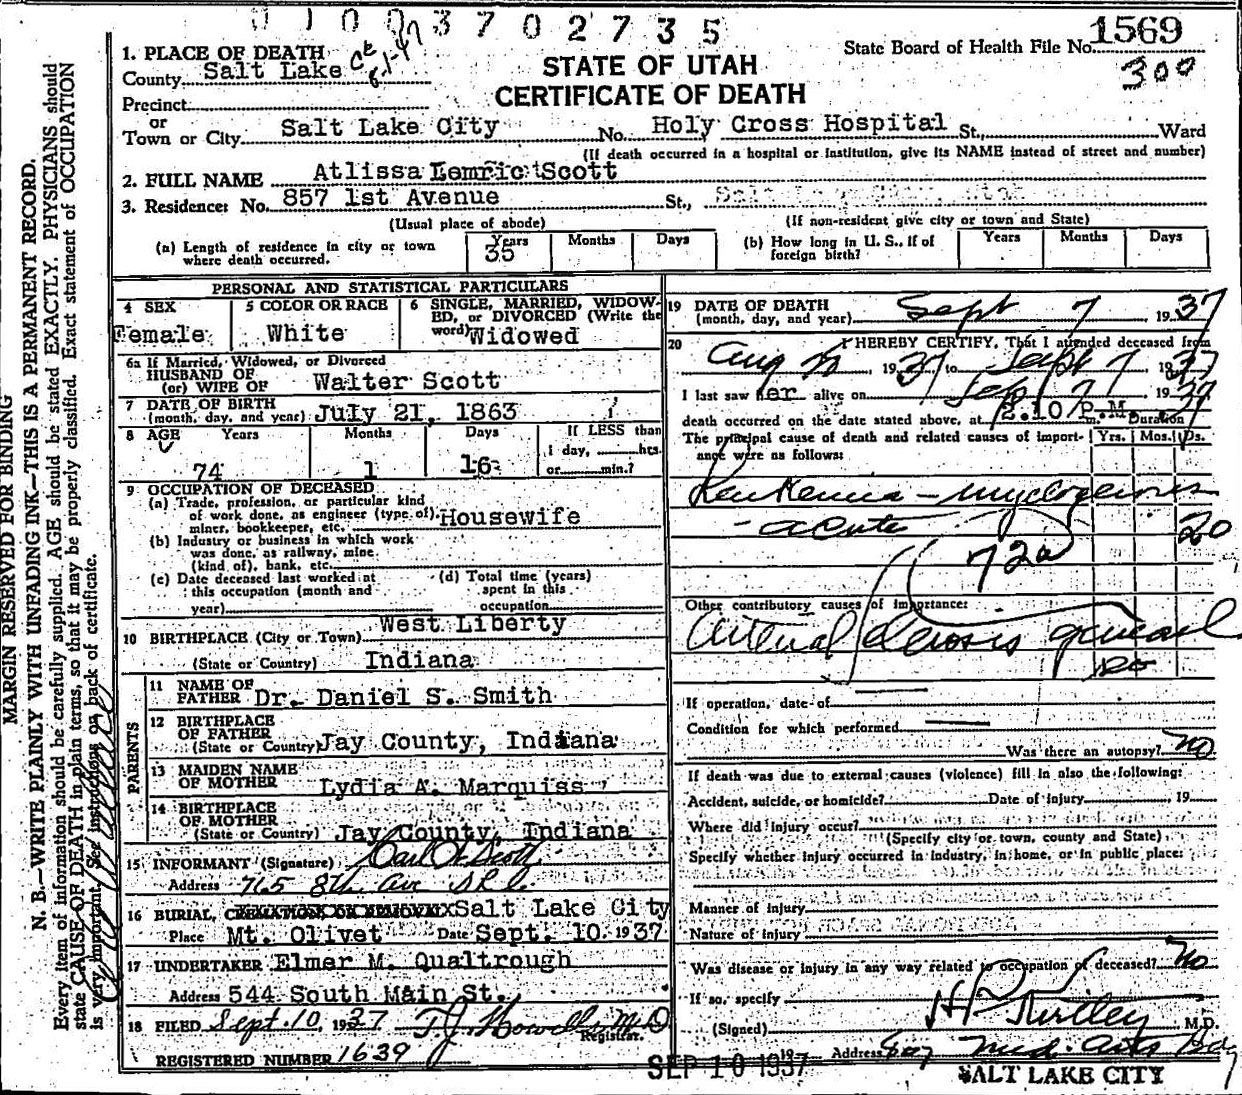 01003702735
1569
State Board of Health File No.
300
1. PLACE OF DEATH
County Salt Lake
STATE OF UTAH
CERTIFICATE OF DEATH
Precinct
or
Town or City Salt Lake City No. Holy Cross Hospital St., Ward
(If death occurred in a hospital or institution, give its NAME instead of street and number)
2. FULL NAME Atlissa Lemric Scott
3. Residence: No. 857 1st Avenue St.,
(Usual place of abode) (If non-resident give city or town and State)
(a) Length of residence in city or town where death occurred. 35 Years Months Days
(b) How long in U. S., if of foreign birth? Years Months Days
PERSONAL AND STATISTICAL PARTICULARS
4 SEX Female
5 COLOR OR RACE White
6 SINGLE, MARRIED, WIDOWED, or DIVORCED (Write the word) Widowed
6a If Married, Widowed, or Divorced
HUSBAND OF
(or) WIFE OF Walter Scott
7 DATE OF BIRTH
(month, day, and year) July 21, 1863
8 AGE Years Months Days If LESS than
1 day, hrs.
74 1 16 or min.?
9 OCCUPATION OF DECEASED
(a) Trade, profession, or particular kind
of work done, as engineer (type of)
miner, bookkeeper, etc. Housewife
(b) Industry or business in which work
was done, as railway, mine.
(kind of), bank, etc.
(c) Date deceased last worked at
this occupation (month and
year)
(d) Total time (years)
spent in this
occupation
10 BIRTHPLACE (City or Town) West Liberty
(State or Country) Indiana
PARENTS
11 NAME OF
FATHER Dr. Daniel S. Smith
12 BIRTHPLACE
OF FATHER
(State or Country) Jay County, Indiana
13 MAIDEN NAME
OF MOTHER Lydia A. Marquiss
14 BIRTHPLACE
OF MOTHER
(State or Country) Jay County, Indiana
15 INFORMANT (Signature) Carl W Scott
Address 765 8th Ave S L C.
16 BURIAL, CREMATION OR REMOVAL Salt Lake City
Place Mt. Olivet Date Sept. 10, 1937
17 UNDERTAKER Elmer M. Qualtrough
Address 544 South Main St.
18 FILED Sept. 10, 1937 T. J. Howells M D
Registrar.
REGISTERED NUMBER 1639
19 DATE OF DEATH
(month, day, and year) Sept 7 1937
20 I HEREBY CERTIFY, That I attended deceased from
Aug 1937 to Sept 7 1937
I last saw her alive on Sep 7 1937
death occurred on the date stated above, at 2.10 P.M. Duration
The principal cause of death and related causes of importance were as follows: Yrs. Mos. Ds.
Leukemia - myelogenous
- acute 20
72a
Other contributory causes of importance:
Arterial sclerosis general
If operation, date of
Condition for which performed
Was there an autopsy? No
If death was due to external causes (violence) fill in also the following:
Accident, suicide, or homicide? Date of injury , 19
Where did injury occur?
(Specify city or town, county and State)
Specify whether injury occurred in industry, in home, or in public place:
Manner of injury
Nature of injury
Was disease or injury in any way related to occupation of deceased? No
If so, specify
(Signed) H P Kirtley M.D.
Address 807 Med. Arts Bdg
SEP 10 1937
SALT LAKE CITY
MARGIN RESERVED FOR BINDING
N. B.—WRITE PLAINLY WITH UNFADING INK—THIS IS A PERMANENT RECORD.
Every item of information should be carefully supplied. AGE should be stated EXACTLY. PHYSICIANS should
state CAUSE OF DEATH in plain terms, so that it may be properly classified. Exact statement of OCCUPATION
is very important. See instructions on back of certificate.